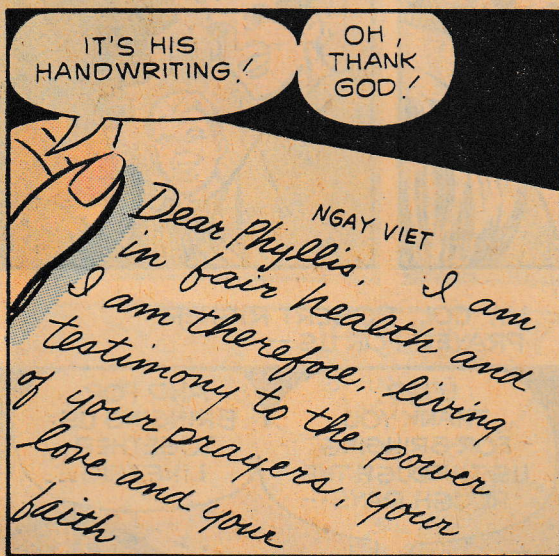 IT'S HIS
HANDWRITING!
OH,
THANK
GOD!
NGAY VIET
Dear Phyllis, I am
in fair health and
I am therefore, living
testimony to the power
of your prayers, your
love and your
faith